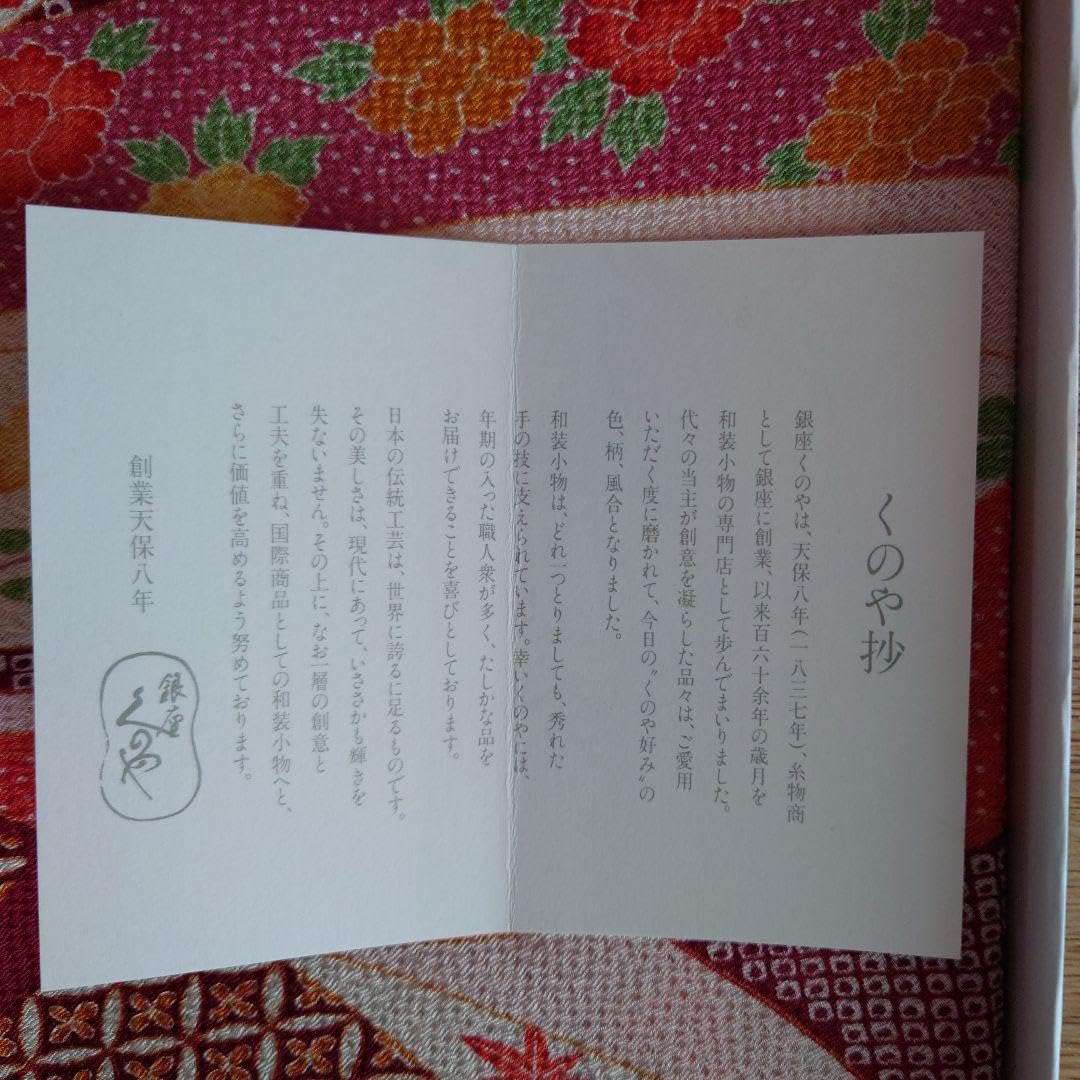 くのや抄
銀座くのやは、天保八年(一八三七年)、糸物商
として銀座に創業、以来百六十余年の歳月を
和装小物の専門店として歩んでまいりました。
代々の当主が創意を凝らした品々は、ご愛用
いただく度に磨かれて、今日の“くのや好み”の
色、柄、風合となりました。
和装小物は、どれ一つとりましても、秀れた
手の技に支えられています。幸いくのやには、
年期の入った職人衆が多く、たしかな品を
お届けできることを喜びとしております。
日本の伝統工芸は、世界に誇るに足るものです。
その美しさは、現代にあって、いささかも輝きを
失ないません。その上に、なお一層の創意と
工夫を重ね、国際商品としての和装小物へと、
さらに価値を高めるよう努めております。
創業天保八年
銀座
くのや